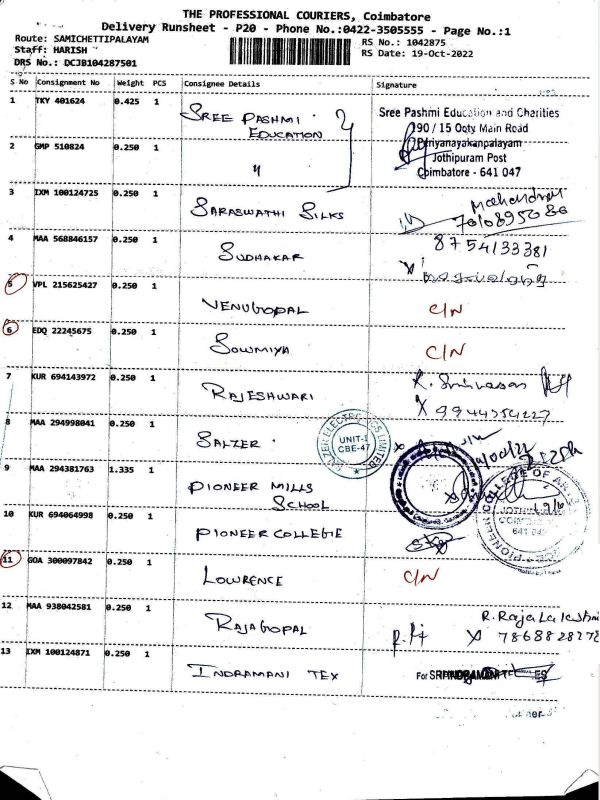 THE PROFESSIONAL COURIERS, Coimbatore
Delivery Runsheet - P20 - Phone No.:0422-3505555 - Page No.:1
Route: SAMICHETTIPALAYAM
RS No.: 1042875
Staff: HARISH
RS Date: 19-Oct-2022
DRS No.: DCJB104287501
S No Consignment No Weight PCS Consignee Details Signature
1 TKY 401624 0.425 1 SREE PASHMI EDUCATION
Sree Pashmi Education and Charities
90 / 15 Ooty Main Road
Periyanayakanpalayam
Jothipuram Post
Coimbatore - 641 047
2 GMP 510824 0.250 1 "
3 IXM 100124725 0.250 1 SARASWATHI SILKS
4 MAA 568846157 0.250 1 SUDHAKAR 8754133381
5 VPL 215625427 0.250 1 VENUGOPAL C/N
6 EDQ 22245675 0.250 1 SOWMIYA C/N
7 KUR 694143972 0.250 1 RAJESHWARI
8 MAA 294998041 0.250 1 SALZER
SALZER ELECTRONICS LIMITED
UNIT-I
CBE-47
9 MAA 294381763 1.335 1 PIONEER MILLS
SCHOOL
10 KUR 694064998 0.250 1 PIONEER COLLEGE
11 GOA 300097842 0.250 1 LOWRENCE C/N
12 MAA 938042581 0.250 1 RAJAGOPAL
13 IXM 100124871 0.250 1 INDRAMANI TEX